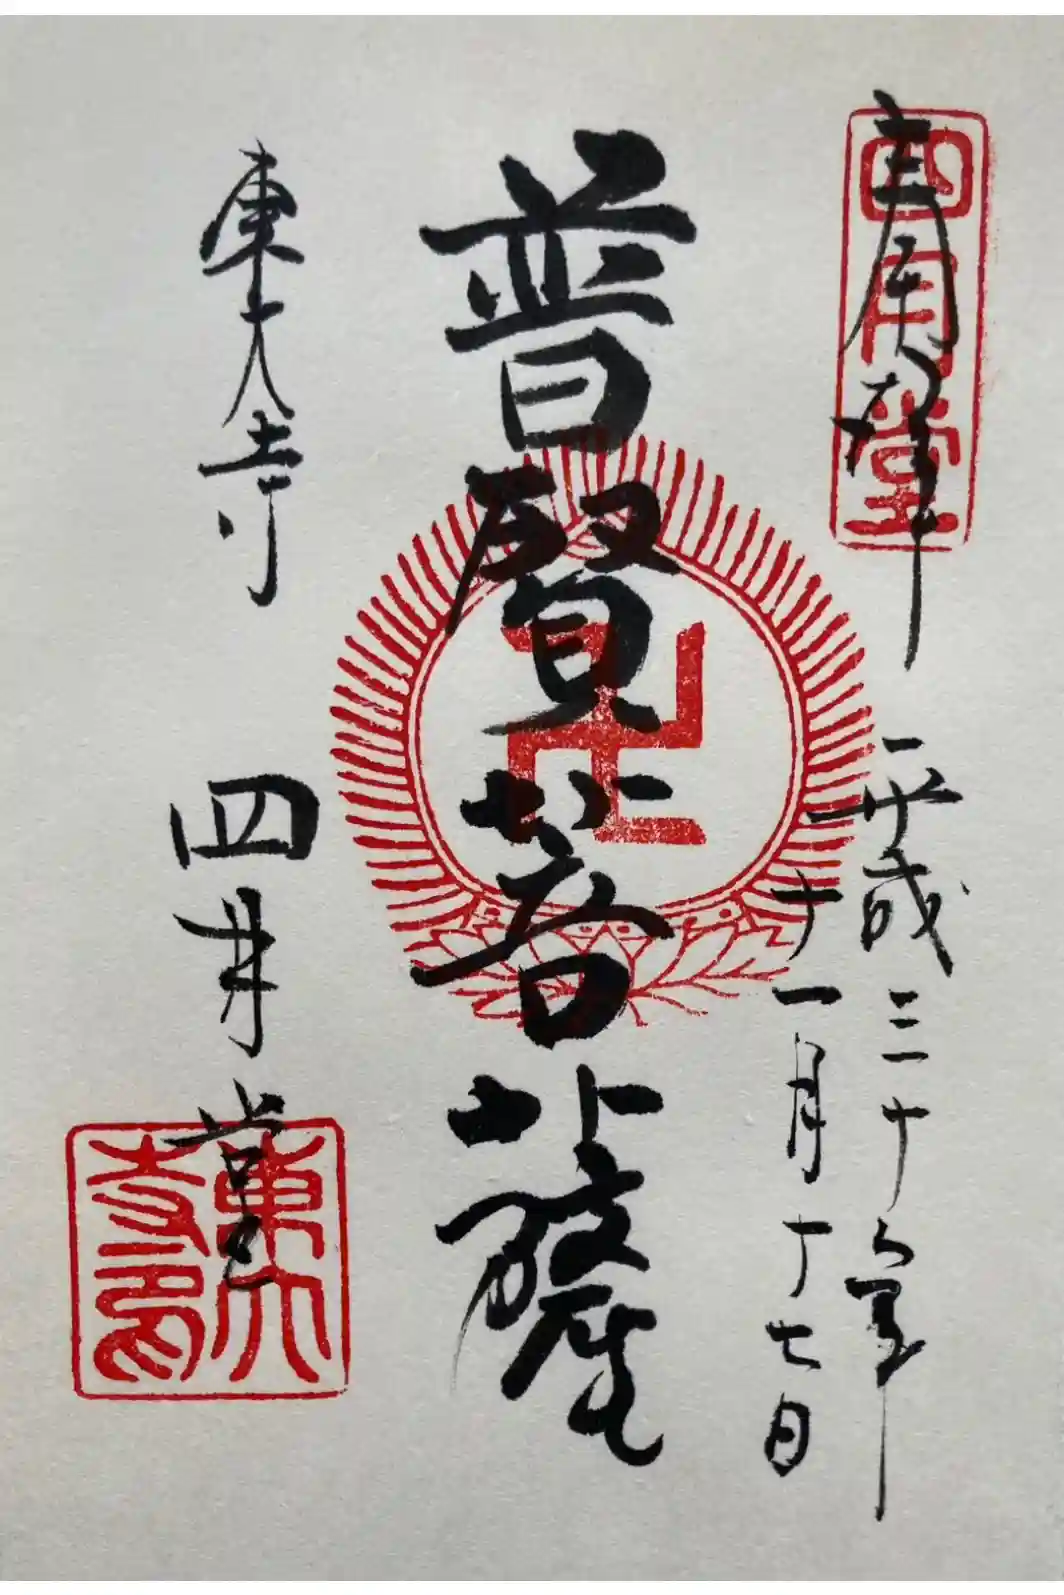 奉拝
四月堂
平成三十年
十一月十七日
普賢菩薩
東大寺
四月堂
東大寺印